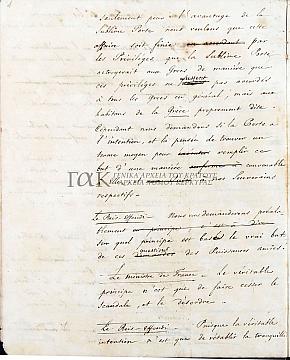 seulement pour l'avantage de la
Sublime Porte nous voulons que cette
affaire soit finie en accordant par
les Privilèges que la Sublime Porte
octroyerait aux Grecs de manière que
ces privilèges ne fussent pas accordés
à tous les Grecs en général, mais aux
habitans de la Grèce proprement dite.
Cependant nous demandons si la Porte a
l'intention, et la pensée de trouver un
moyen pour remplir ce
but d'une manière convenable
ΓΑΚ ΓΕΝΙΚΑ ΑΡΧΕΙΑ ΤΟΥ ΚΡΑΤΟΥΣ
ΑΡΧΕΙΑ ΝΟΜΟΥ ΚΕΡΚΥΡΑΣ
Souverains
respectifs.
Le Reis-Effendi. Nous vous demanderons préala-
blement en principe c'est à dire
sur quel principe est basé le vrai but
de ces demandes des Puissances amies.
Le ministre de France. Le véritable
principe n'est que de faire cesser le
scandale, et le désordre.
Le Reis-Effendi. Puisque la véritable
intention n'est que de rétablir la tranquillité